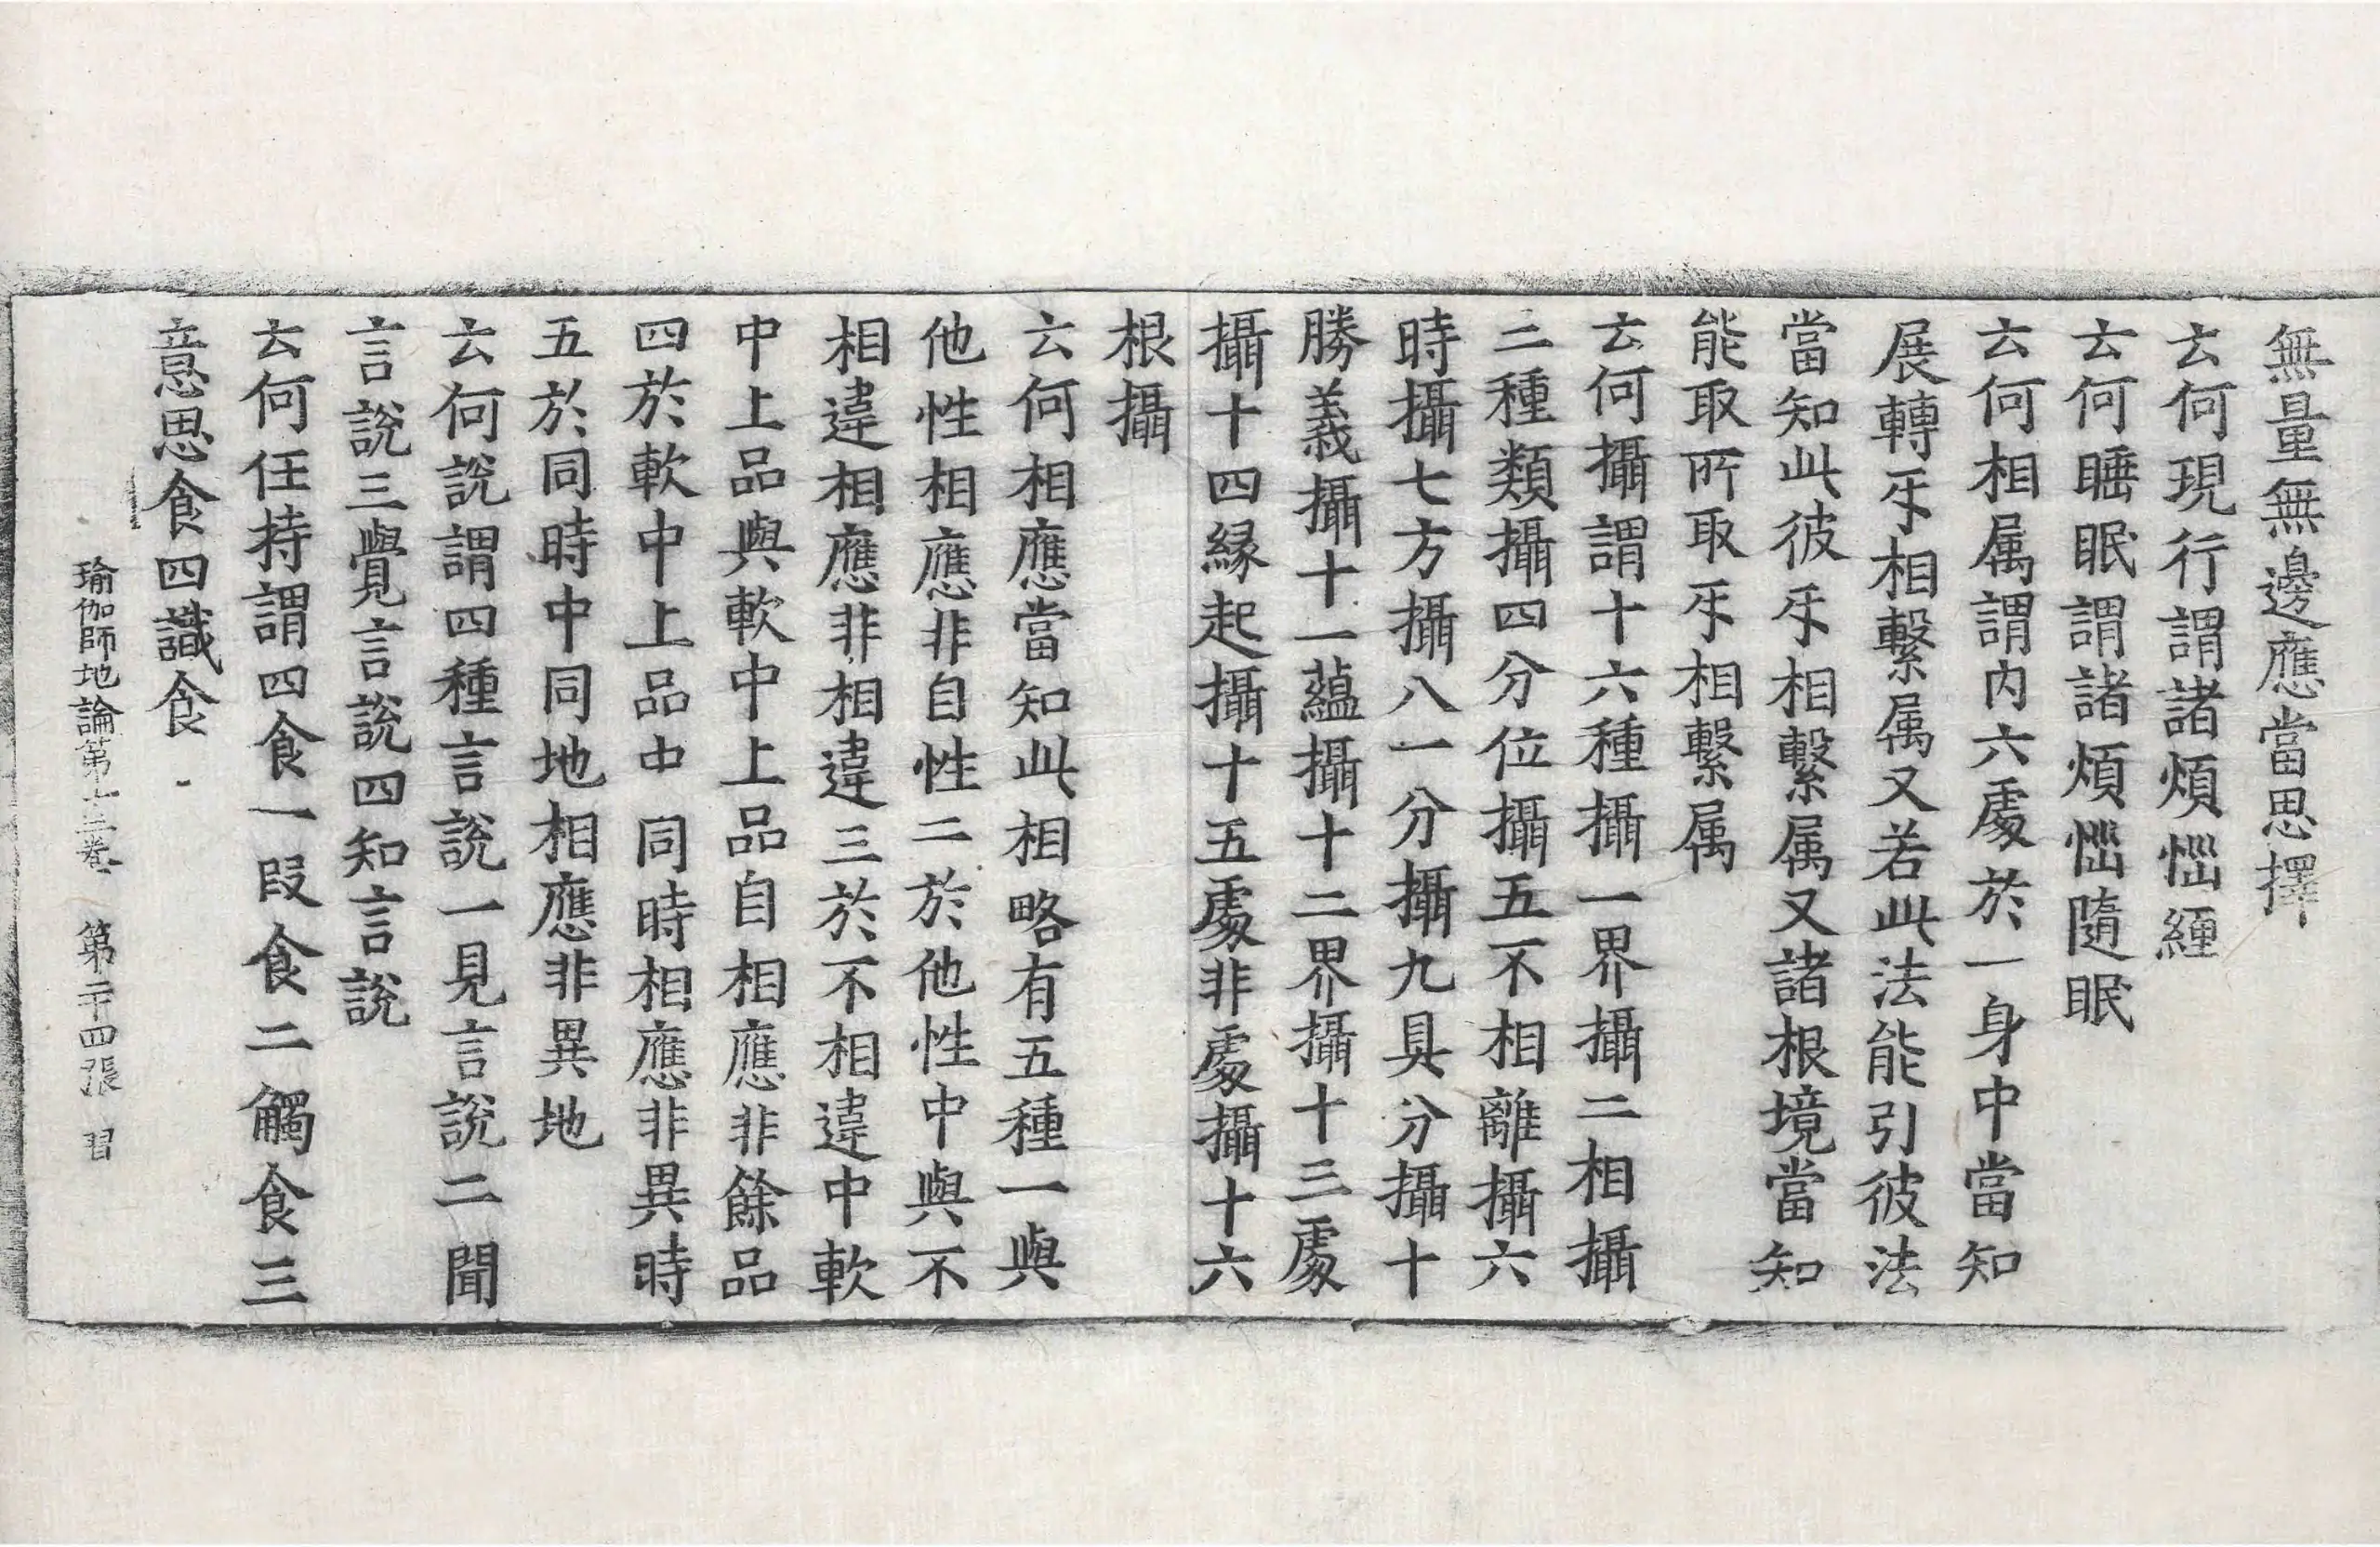 無量無邊應當思擇
云何現行謂諸煩惱纒
云何睡眠謂諸煩惱隨眠
云何相属謂内六處於一身中當知
展轉㸦相繫属又若此法能引彼法
當知此彼㸦相繫属又諸根境當知
能取所取㸦相繫属
云何攝謂十六種攝一界攝二相攝
三種類攝四分位攝五不相離攝六
時攝七方攝八一分攝九具分攝十
勝義攝十一蘊攝十二界攝十三處
攝十四縁起攝十五處非處攝十六
根攝
云何相應當知此相略有五種一與
他性相應非自性二於他性中與不
相違相應非相違三於不相違中軟
中上品與軟中上品自相應非餘品
四於軟中上品中同時相應非異時
五於同時中同地相應非異地
云何說謂四種言說一見言說二聞
言說三覺言說四知言說
云何任持謂四食一段食二觸食三
意思食四識食
瑜伽師地論第十三卷 第二十四張 習